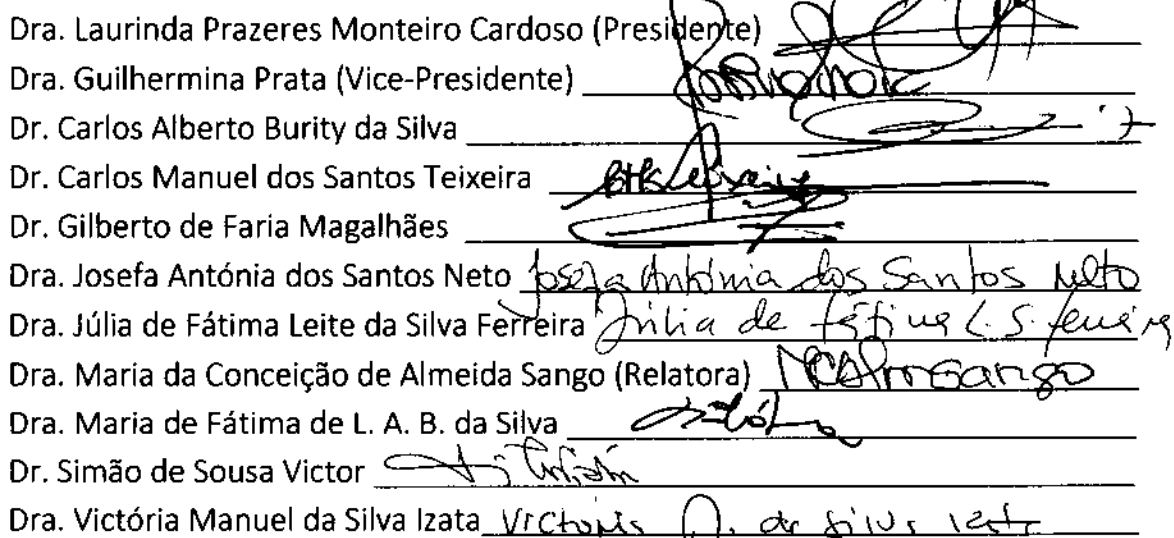 Dra. Laurinda Prazeres Monteiro Cardoso (Presidente)
Dra. Guilhermina Prata (Vice-Presidente)
Dr. Carlos Alberto Burity da Silva
Dr. Carlos Manuel dos Santos Teixeira
Dr. Gilberto de Faria Magalhães
Dra. Josefa Antónia dos Santos Neto Josefa Antónia dos Santos Neto
Dra. Júlia de Fátima Leite da Silva Ferreira Júlia de Fátima L. S. Ferreira
Dra. Maria da Conceição de Almeida Sango (Relatora)
Dra. Maria de Fátima de L. A. B. da Silva
Dr. Simão de Sousa Victor
Dra. Victória Manuel da Silva Izata